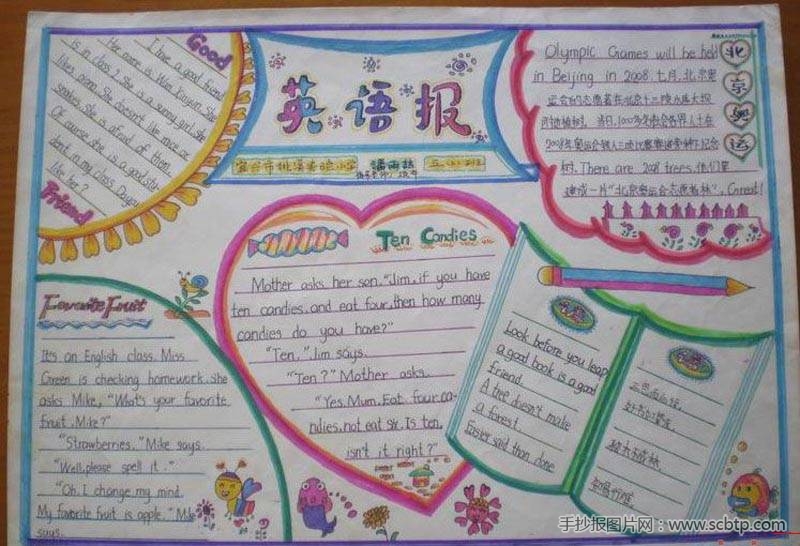 Good
Friend
I have a good friend.
Her name is Wan Xinyun. She
is in class 2. She is a sunny girl. She
likes
She doesn't like mice or
snakes. she is afraid of them.
Of course she is a good stu-
dent in my class. Do you
like her?
英语报
小学
五
班
Olympic Games will be held
in Beijing in 2008 七月,北京奥
运会的志愿者在北京十三陵水库大坝
1000多
There are 2008 trees,他们要
建成一片"北京奥运会志愿者林", Great!
北
京
奥
运
Favorite Fruit
It's an English class. Miss
Green is checking homework. She
asks Mike, "What's your favorite
fruit, Mike?"
"Strawberries." Mike says.
"Well, please spell it."
"Oh. I change my mind.
My favorite fruit is apple." Mike
says.
Ten Candies
Mother asks her son, "Jim, if you have
ten candies, and eat four, then how many
candies do you have?"
"Ten." Jim says.
"Ten?" Mother asks.
"Yes, Mum. Eat four ca-
ndies, not eat six. Is ten,
isn't it right?"
Look before you leap
a good book is a good
friend.
A tree doesn't make
a forest.
Easier said than done
三思而后行
好书如挚友
独木不成林
知易行难
手抄报图片网·www.scbtp.com